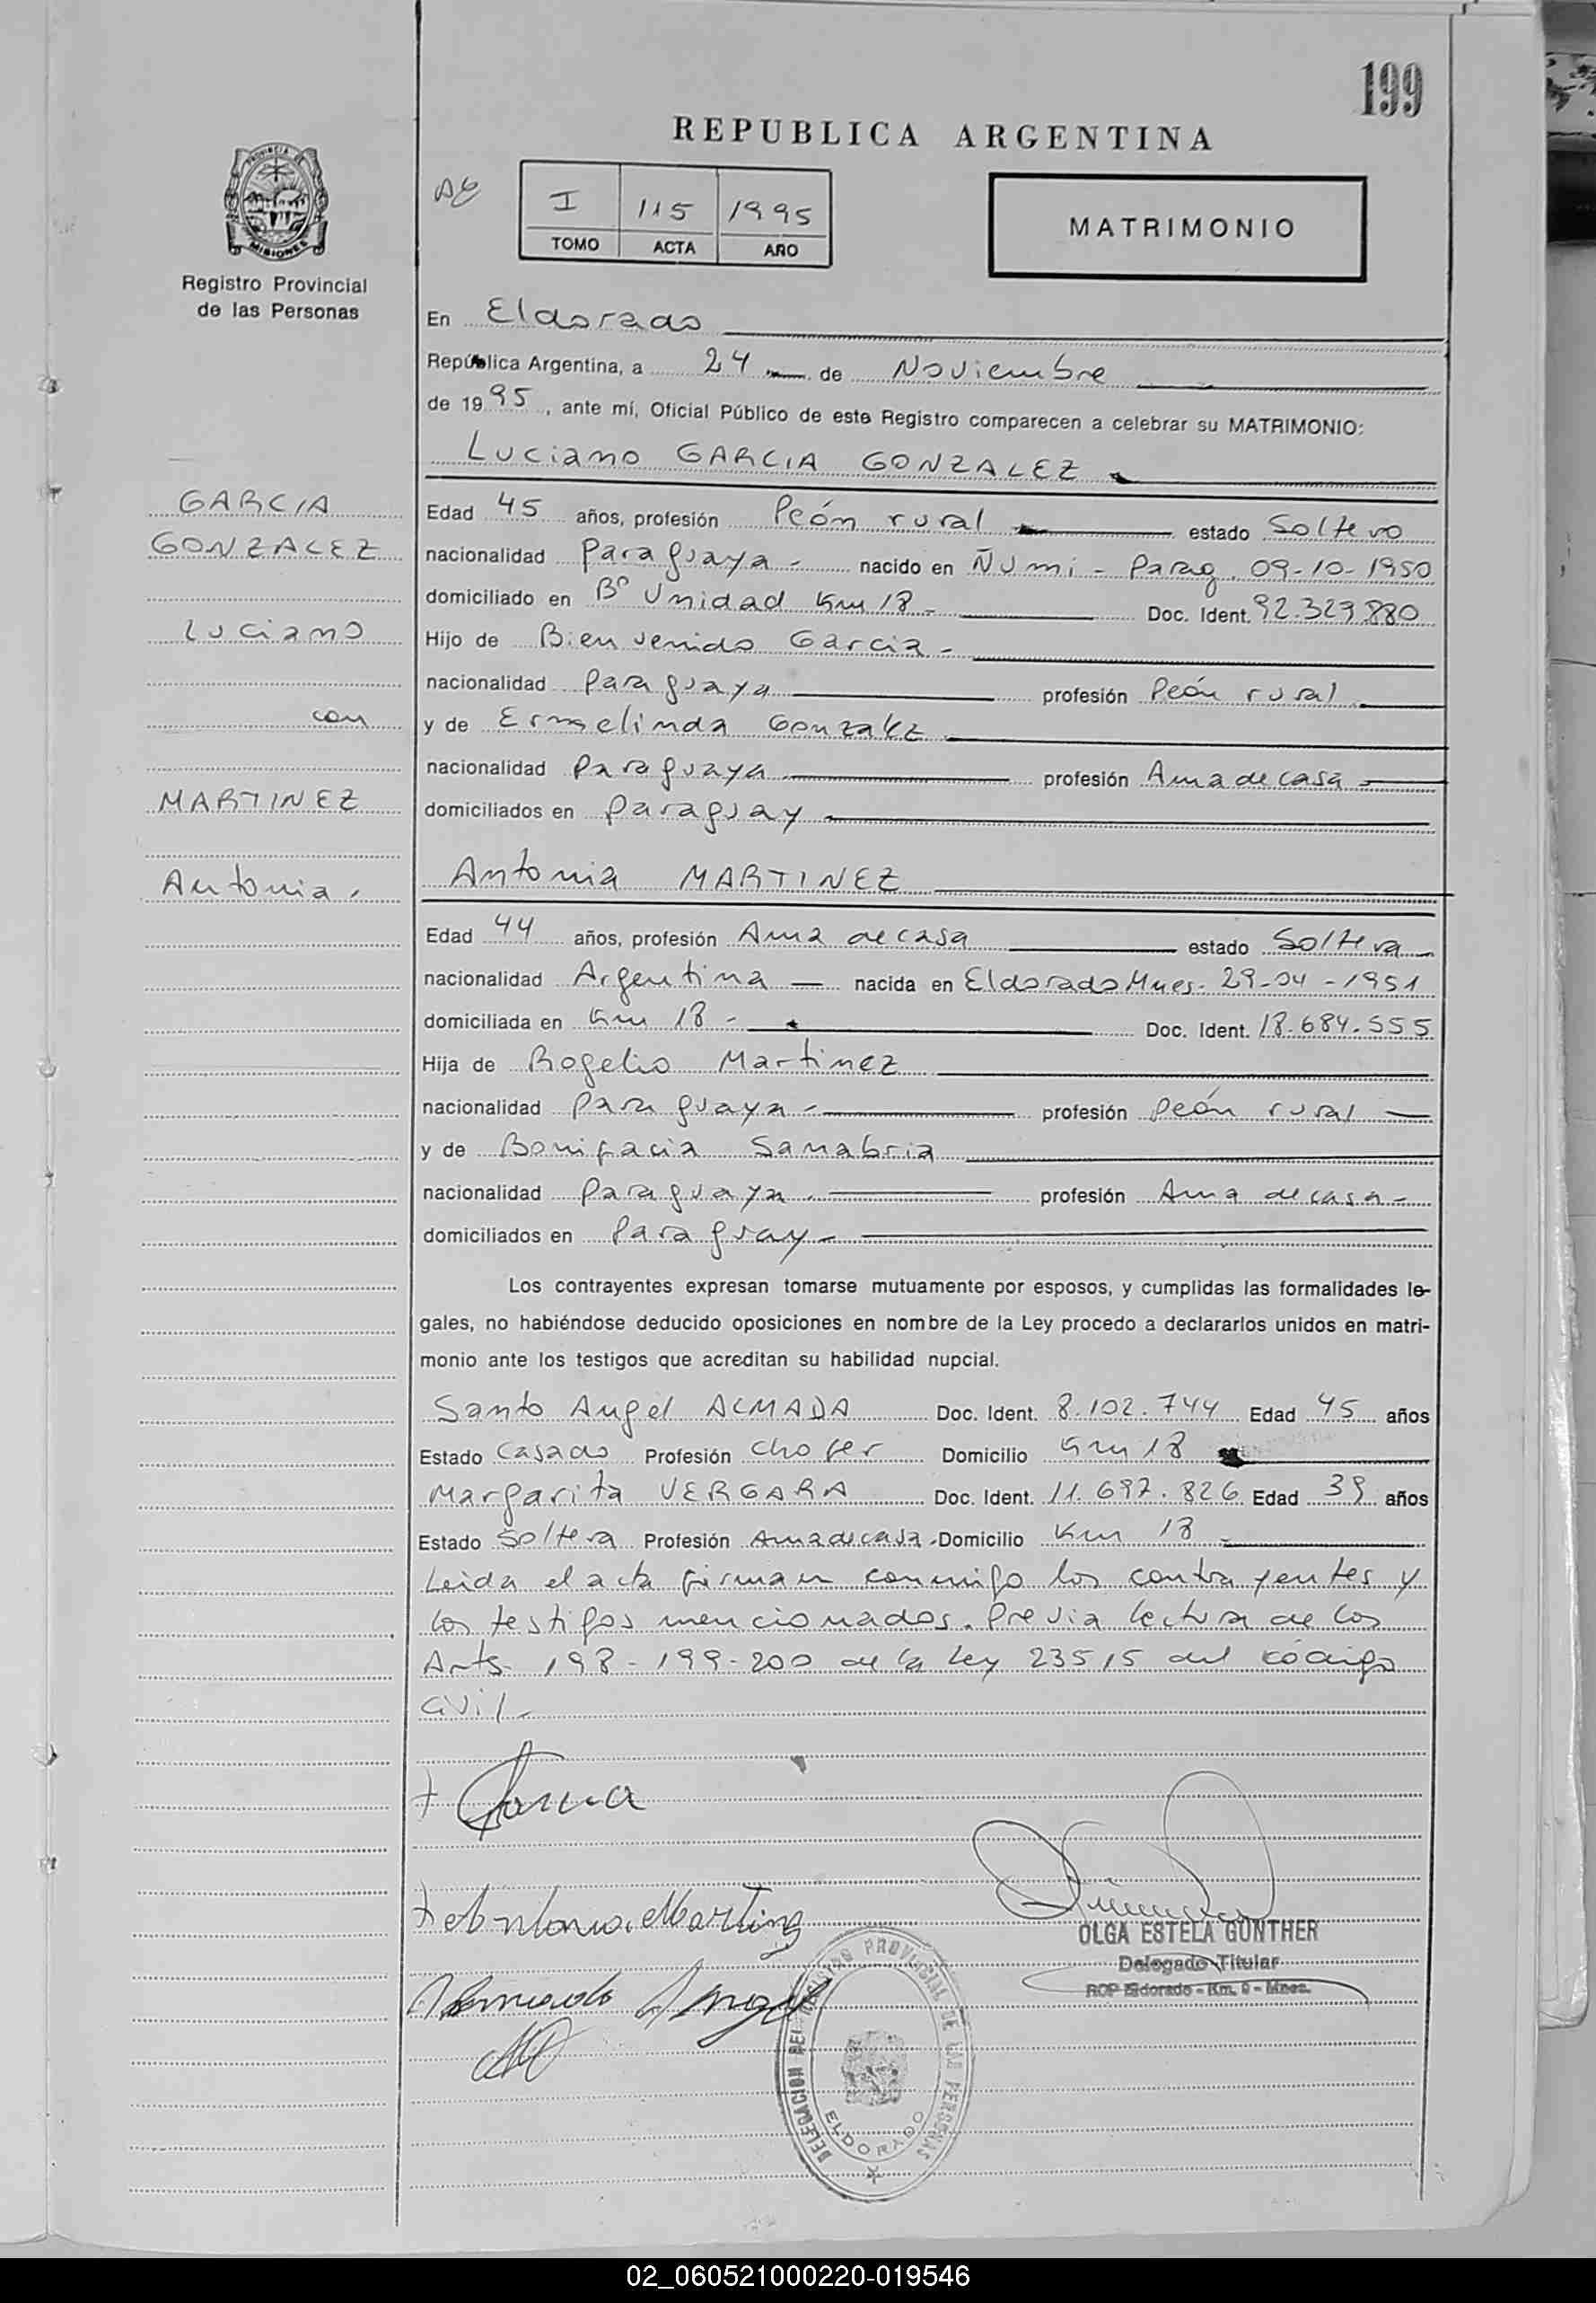 199
REPUBLICA ARGENTINA
I 115 1995
TOMO ACTA AÑO
MATRIMONIO
PROVINCIA DE MISIONES
Registro Provincial
de las Personas
En Eldorado
República Argentina, a 24 de Noviembre
de 1995, ante mí, Oficial Público de este Registro comparecen a celebrar su MATRIMONIO:
Luciano GARCIA GONZALEZ
GARCIA
GONZALEZ
Luciano
con
MARTINEZ
Antonia
Edad 45 años, profesión Peón rural estado Soltero
nacionalidad Paraguaya nacido en Ñumi - Parag. 09-10-1950
domiciliado en Bº Unidad Km 18 Doc. Ident. 92.329.880
Hijo de Bienvenido Garcia
nacionalidad Paraguaya profesión Peón rural
y de Ermelinda Gonzalez
nacionalidad Paraguaya profesión Ama de casa
domiciliados en Paraguay
Antonia MARTINEZ
Edad 44 años, profesión Ama de casa estado Soltera
nacionalidad Argentina nacida en Eldorado Mnes. 29-04-1951
domiciliada en Km 18 Doc. Ident. 18.684.555
Hija de Rogelio Martinez
nacionalidad Paraguaya profesión Peón rural
y de Bonifacia Sanabria
nacionalidad Paraguaya profesión Ama de casa
domiciliados en Paraguay
Los contrayentes expresan tomarse mutuamente por esposos, y cumplidas las formalidades le-
gales, no habiéndose deducido oposiciones en nombre de la Ley procedo a declararlos unidos en matri-
monio ante los testigos que acreditan su habilidad nupcial.
Santo Angel ALMADA Doc. Ident. 8.102.744 Edad 45 años
Estado Casado Profesión Chofer Domicilio Km 18
Margarita VERGARA Doc. Ident. 11.697.826 Edad 39 años
Estado Soltera Profesión Ama de casa Domicilio Km 18
Leida el acta firman conmigo los contrayentes y
los testigos mencionados. Previa lectura de los
Arts. 198-199-200 de la Ley 23515 del código
civil
Antonia Martinez
OLGA ESTELA GUNTHER
Delegado Titular
RCP Eldorado - Km. 9 - Mnes.
DELEGACION DEL REGISTRO PROVINCIAL DE LAS PERSONAS
ELDORADO
02_060521000220-019546